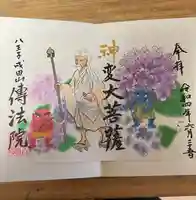 奉拝
令和四年六月三日
神変大菩薩
八王子成田山
傳法院